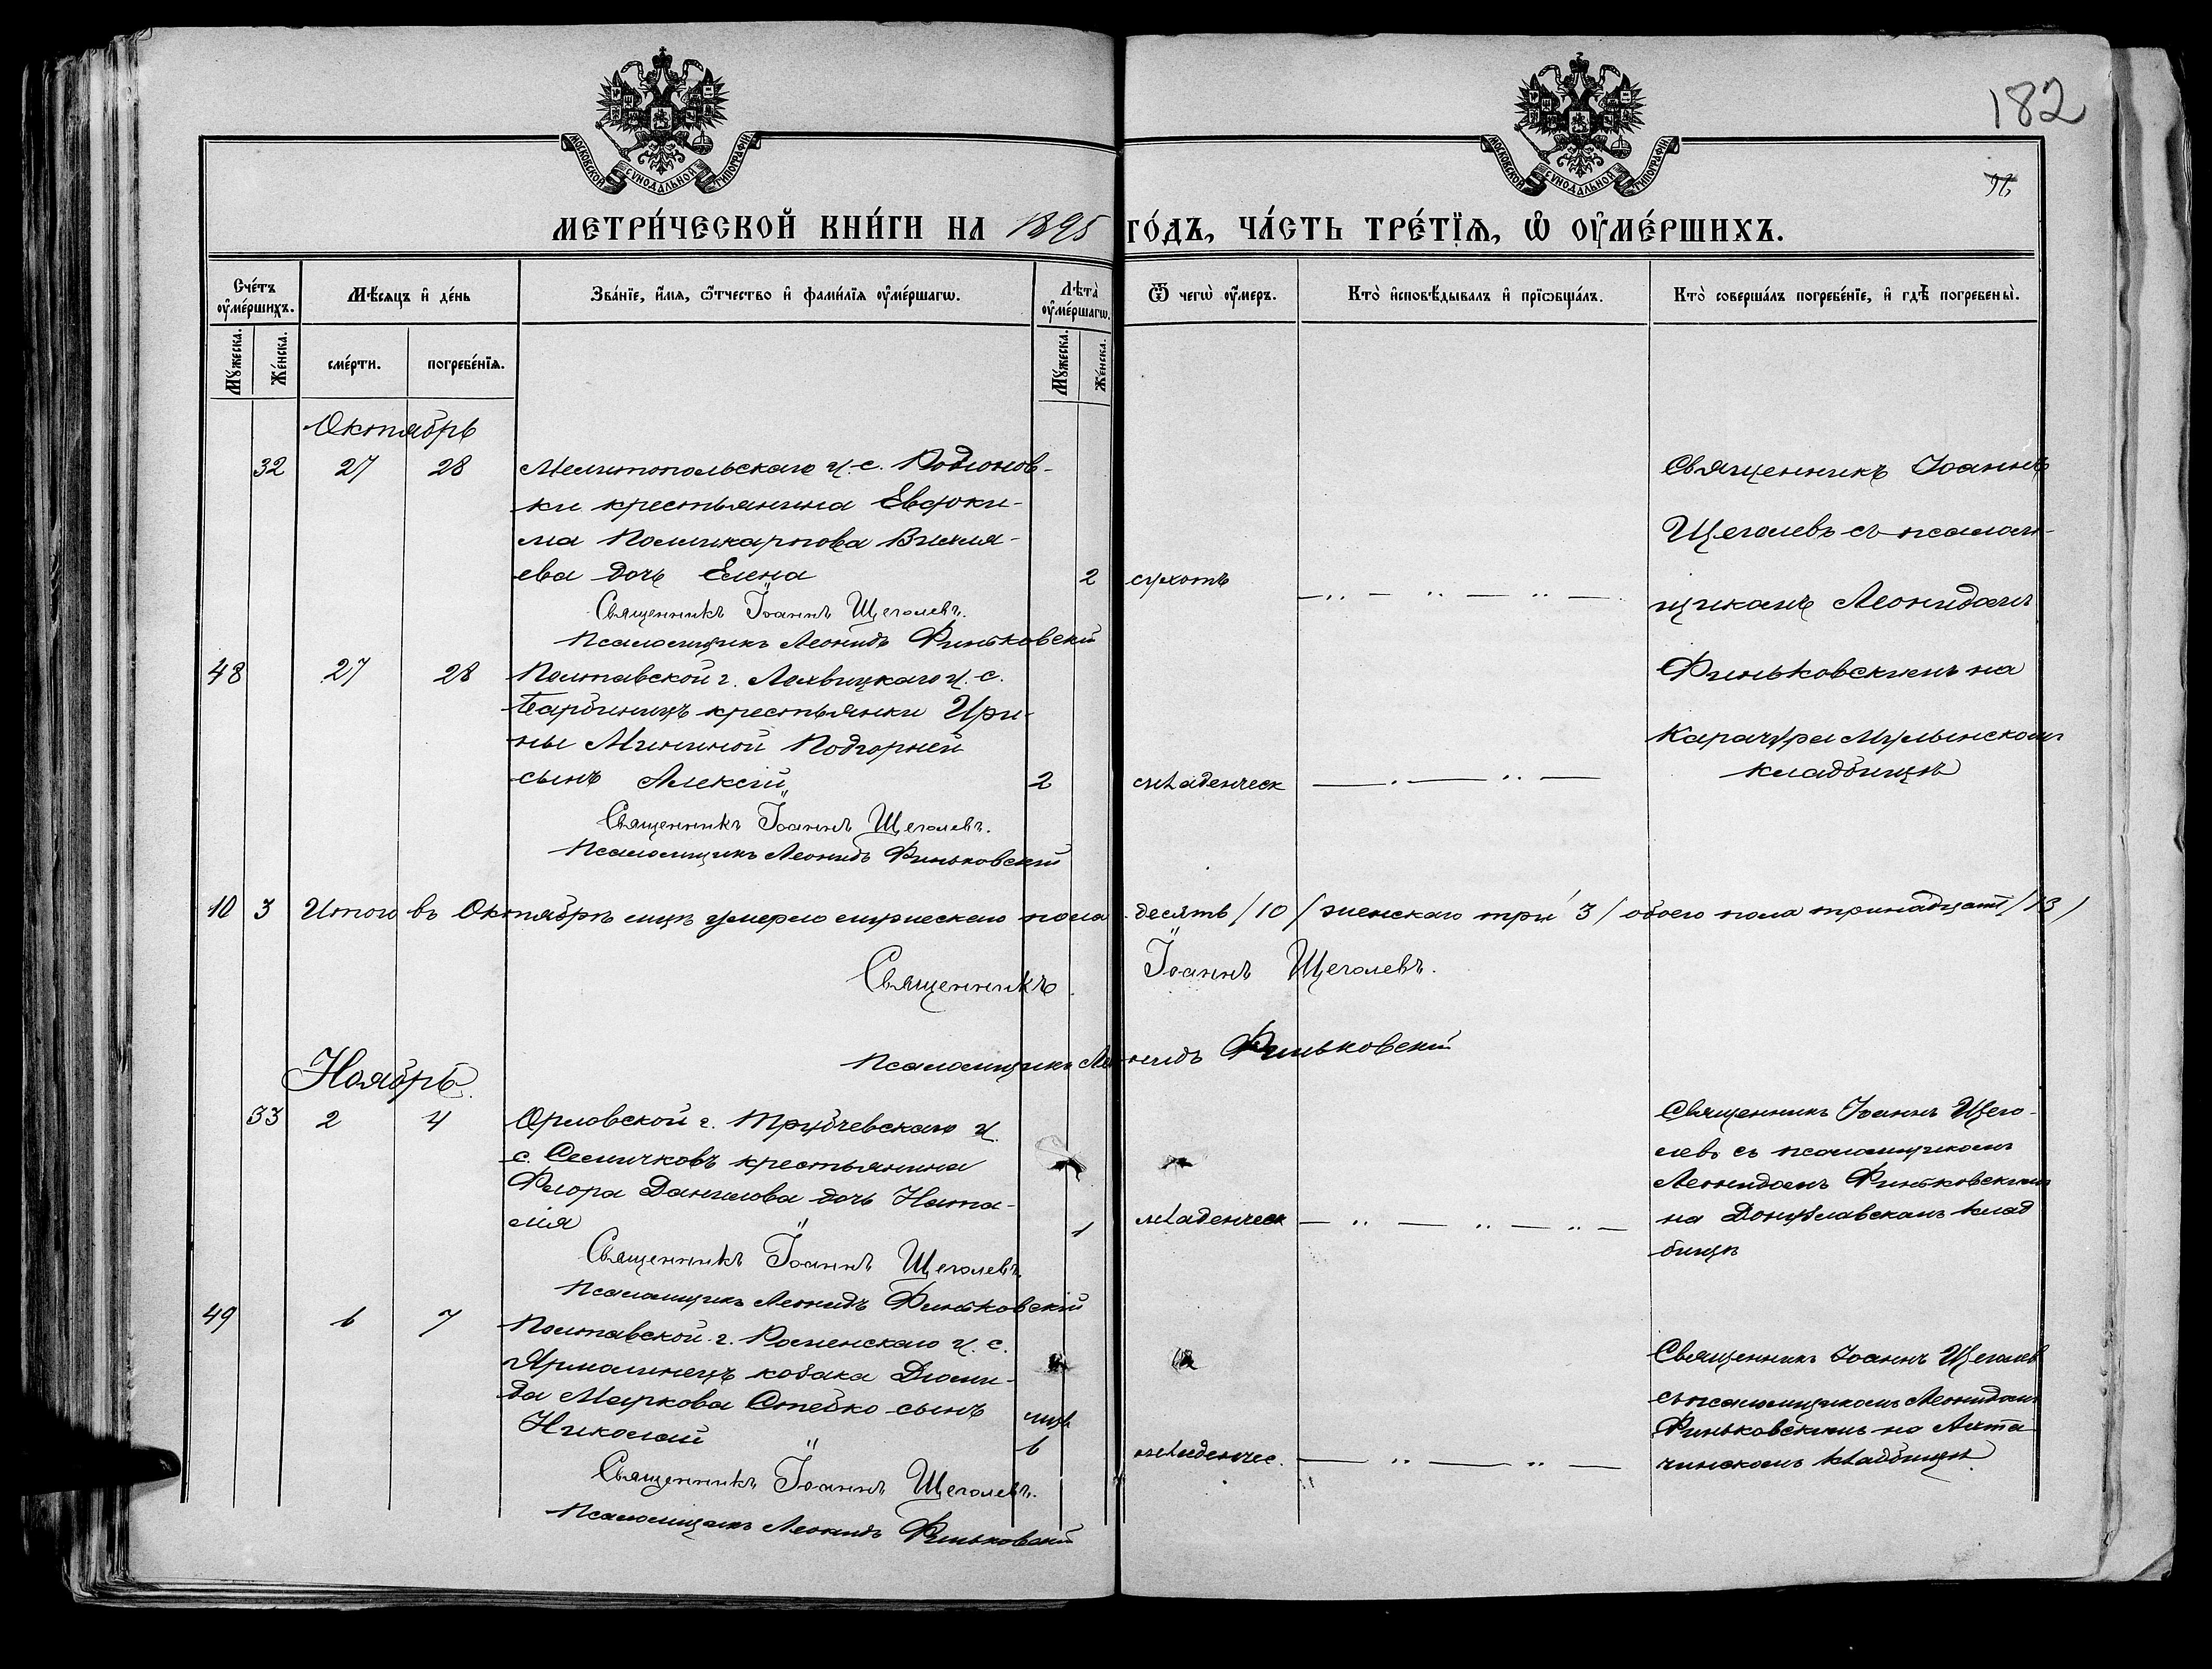 182
96
МОСКОВСКОЙ СУНОДАЛЬНОЙ ТИПОГРАФІИ
МОСКОВСКОЙ СУНОДАЛЬНОЙ ТИПОГРАФІИ
МЕТРИ́ЧЕСКОЙ КНИ́ГИ НА 1895 ГО́ДЪ, ЧА́СТЬ ТРЕ́ТЇѦ, Ѡ҆ ОУ҆МЕ́РШИХЪ.
Сче́тъ оу҆ме́ршихъ.
Мѣ́сѧцъ и҆ де́нь
Зва́нїе, и҆́мѧ, ѻ҆́тчество и҆ фами́лїѧ оу҆ме́ршагѡ.
Лѣта̀ оу҆ме́ршагѡ.
Ѿ чегѡ̀ оу҆́меръ.
Кто̀ и҆сповѣ́дывалъ и҆ прїѡбща́лъ.
Кто̀ соверша́лъ погребе́нїе, и҆ гдѣ̀ погребены̀.
Мꙋ́жеска. Же́нска. сме́рти. погребе́нїѧ. Мꙋ́жеска. Же́нска.
Октябрь
32 27 28 Мелитопольскаго у. с. Родіонов-
ки крестьянина Евдоки-
ма Поликарпова
ева дочь Елена 2 сухотъ
Священникъ Іоаннъ Щеголевъ.
Псаломщикъ Леонидъ Финьковскій
Священникъ Іоаннъ
Щеголевъ съ псалом-
щикомъ Леонидомъ
Финьковскимъ на
кладбищѣ
48 27 28 Полтавской г. Лохвицкаго у. с.
крестьянки Ири-
ны Мининой Подгорней
сынъ Алексій 2 младенческ
Священникъ Іоаннъ Щеголевъ.
Псаломщикъ Леонидъ Финьковскій
10 3 Итого въ Октябрѣ мцѣ умерло мужескаго пола десять /10/ женскаго три 3/ обоего пола тринадцать /13/
Священникъ Іоаннъ Щеголевъ.
Псаломщикъ Леонидъ Финьковскій
Ноябрь.
33 2 4 Орловской г. Трубчевскаго у.
с. Семичковъ крестьянина
Флора Данилова дочь Ната-
лія 1 младенческ
Священникъ Іоаннъ Щеголевъ.
Псаломщикъ Леонидъ Финьковскій
Священникъ Іоаннъ Щего-
левъ съ псаломщикомъ
Леонидомъ Финьковскимъ
на Донузлавскомъ клад
бищѣ
49 6 7 Полтавской г. Роменскаго у. с.
Ярмолинецъ козака Діоми-
да Маркова Стейко сынъ мцв
Николай 6 младенчес.
Священникъ Іоаннъ Щеголевъ.
Псаломщикъ Леонидъ Финьковскій
Священникъ Іоаннъ Щеголев
съ псаломщикомъ Леонидомъ
Финьковскимъ на Ахта
чинскомъ кладбищѣ